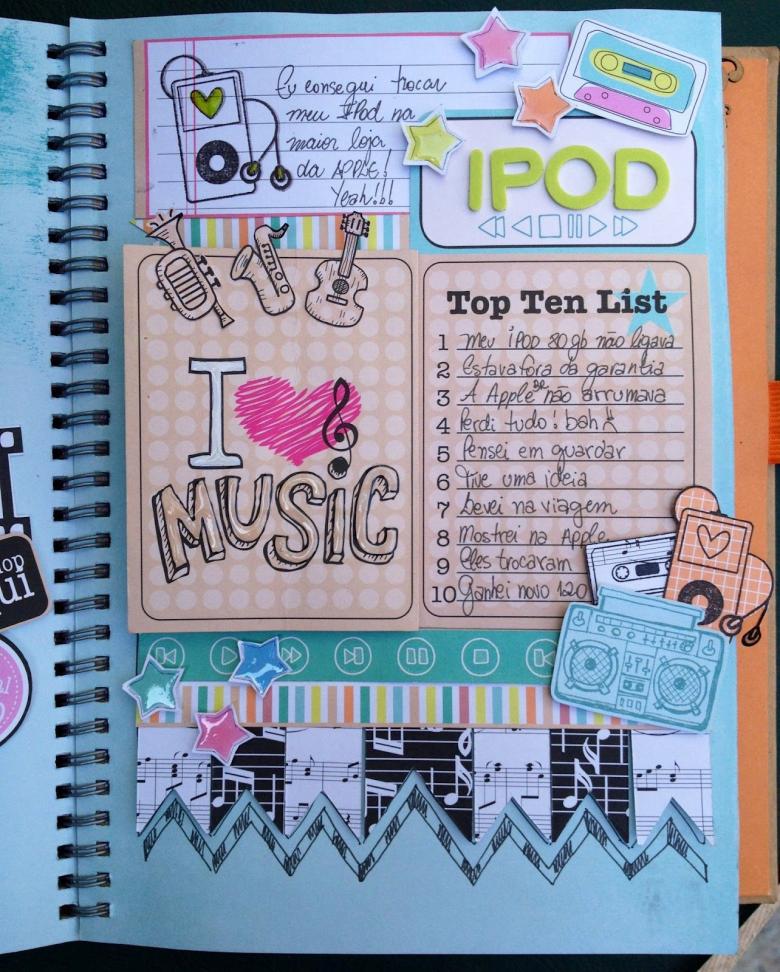 Eu consegui trocar
meu IPod na
maior loja
da APPLE!
Yeah!!!
IPOD
I
MUSIC
Top Ten List
1 Meu iPOD 80 gb não ligava
2 Estava fora da garantia
3 A Apple BR não arrumava
4 Perdi tudo! bah
5 Pensei em guardar
6 Tive uma ideia
7 Levei na viagem
8 Mostrei na Apple
9 Eles trocaram
10 Ganhei novo 120